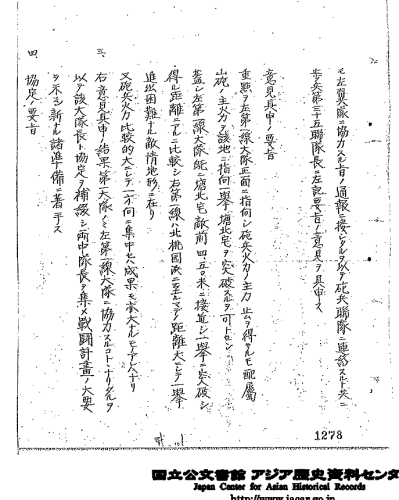 モ左翼兵隊ニ協力スル旨ノ通報ニ接シタルヲ以テ砲兵聯隊ニ連絡スルト共ニ
歩兵第三十五聯隊長ニ左記要旨ノ意見ヲ具申ス
意見具申ノ要旨
重點ヲ左第一線大隊正面ニ指向シ砲兵火力ノ主力 止ムヲ得サルモ配屬
山砲ノ主火力ヲ該地ニ指向シ一擧塘北宅ヲ突破スルヲ可トセン
蓋シ左第一線大隊ハ既ニ塘北宅敵前四五〇米ニ接近シ一擧ニ突破シ
得ル距離ニアルニ比較シ右第一線ハ北桃園浜ニ至ルマデノ距離大ニシテ一擧
進出困難ナル敵情地形ニ在リ
又砲兵火力比較的大ニシテ一方向ニ集中セハ成果モ亦大ナルモノアレハナリ
三、右意見具申ノ結果第一大隊ノミ左第一線大隊ニ協力スルコトトナリタルヲ
以テ該大隊長ト協定ヲ補綴シ両中隊長ヲ集メ戰闘計畫ノ大要
ヲ示シ新ナル諸準備ニ著手ス
四、協定ノ要旨
1278
国立公文書館 アジア歴史資料センタ
Japan Center for Asian Historical Records
http://www.jacar.go.jp